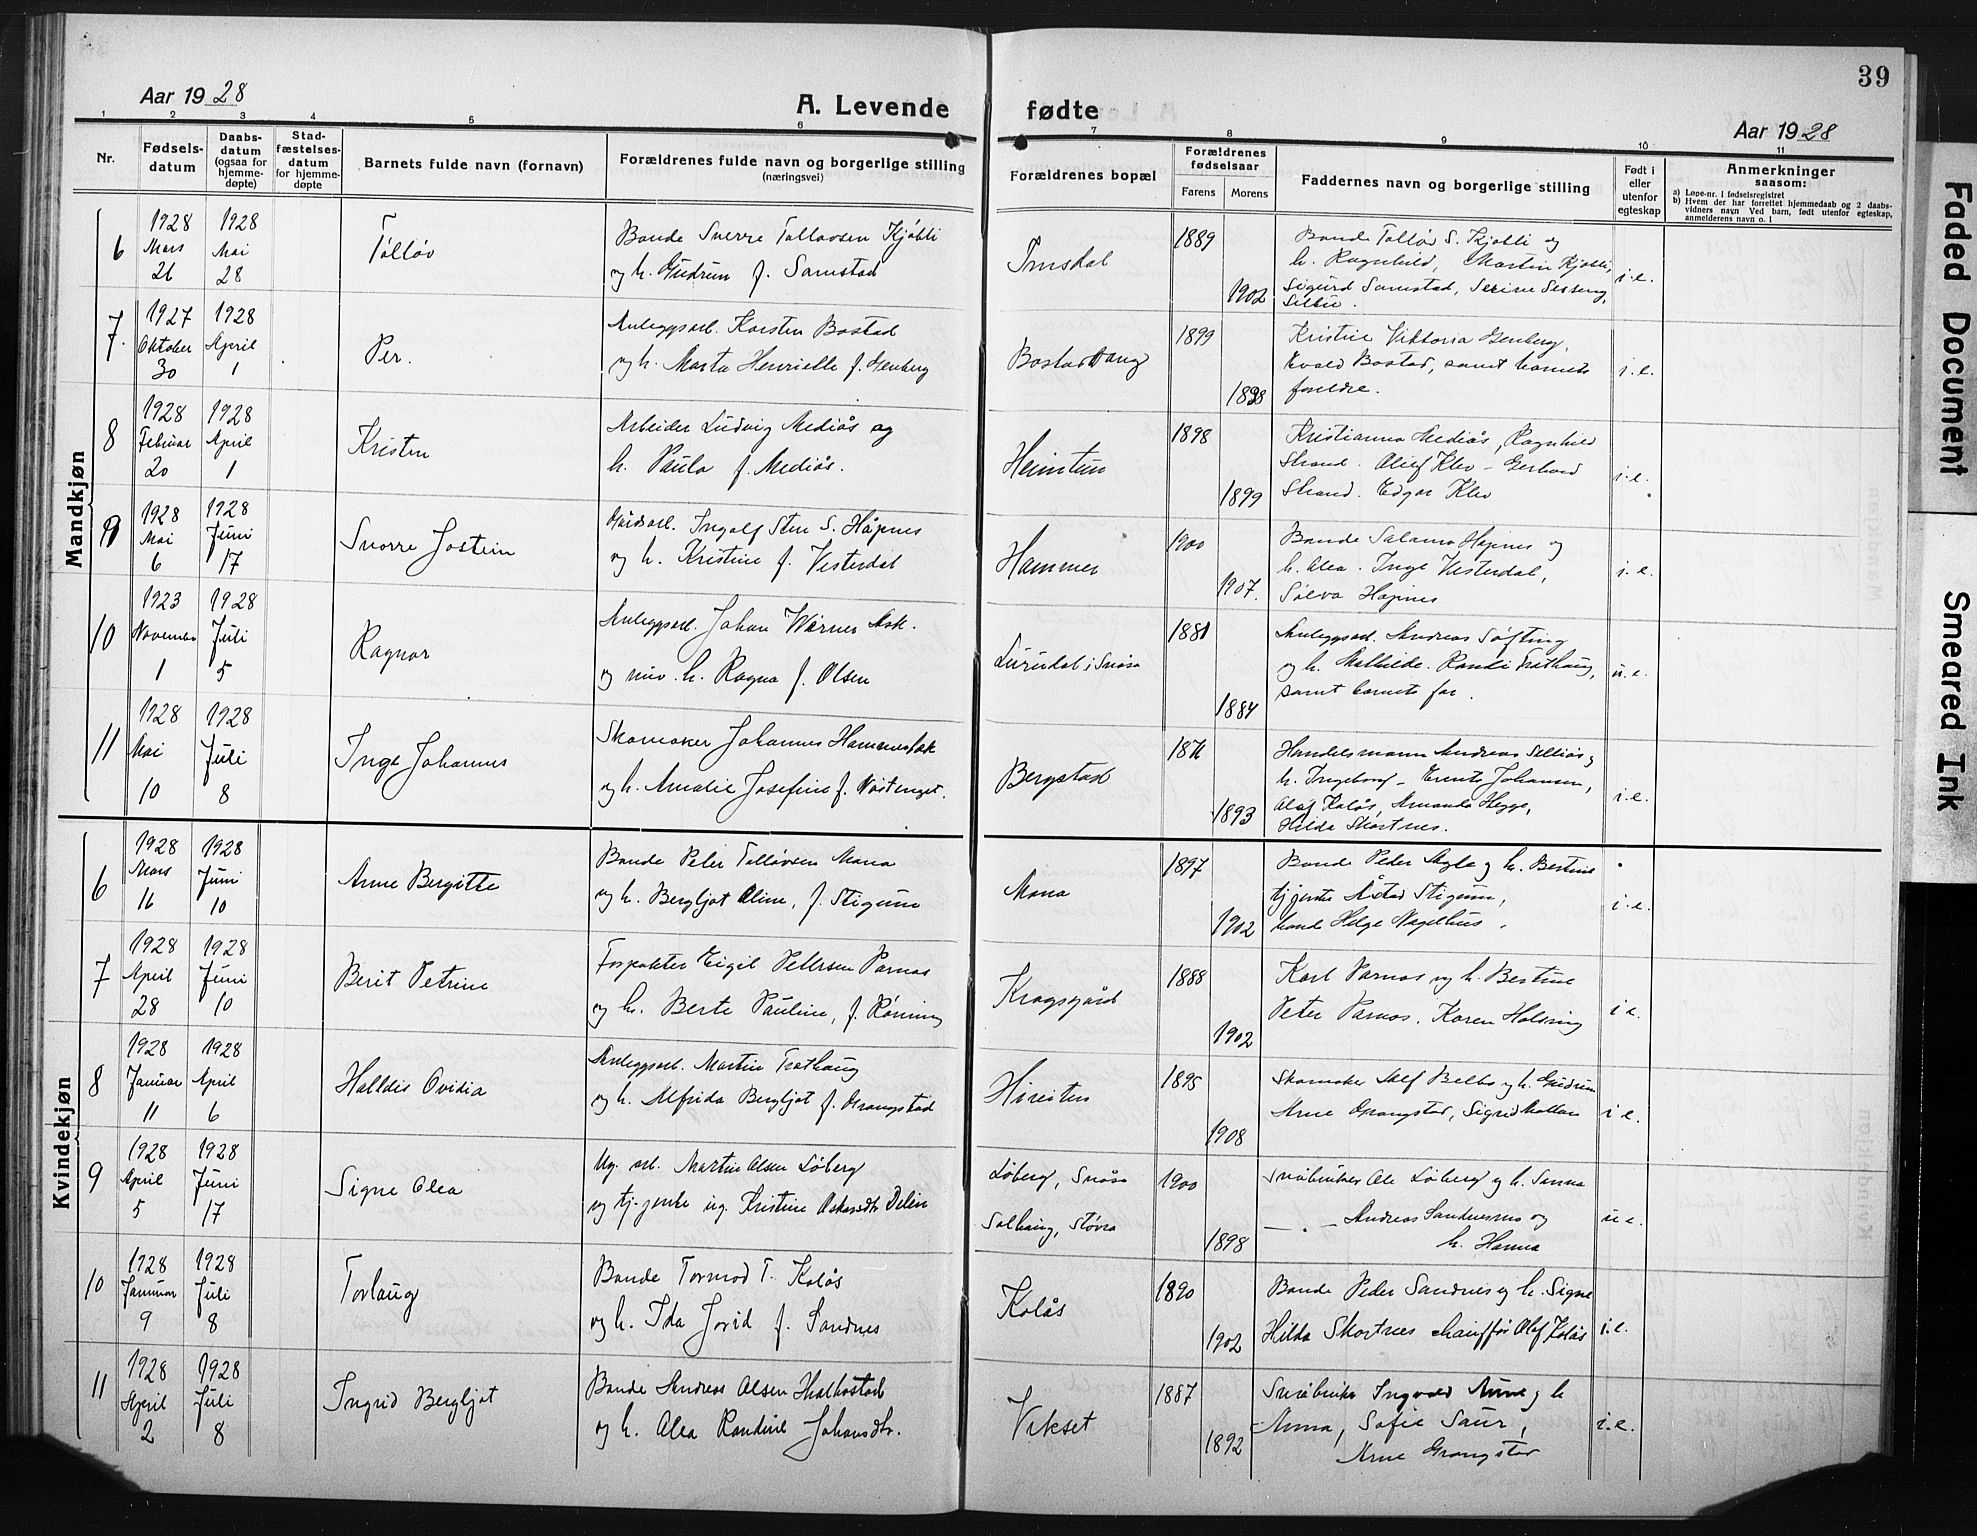 39
Aar 1928
A. Levende fødte
Aar 1928
1 2 3 4 5 6 7 8 9 10 11
Nr.
Fødsels-
datum
Daabs-
datum
(ogsaa for
hjemme-
døpte)
Stad-
fæstelses-
datum
for hjemme-
døpte
Barnets fulde navn (fornavn)
Forældrenes fulde navn og borgerlige stilling
(næringsvei)
Forældrenes bopæl
Forældrenes
fødselsaar
Farens Morens
Faddernes navn og borgerlige stilling
Født i
eller
utenfor
egteskap
Anmerkninger
saasom:
a) Løpe-nr. i fødselsregistret
b) Hvem der har forrettet hjemmedaab og 2 daabs-
vidners navn Ved barn, født utenfor egteskap,
anmelderens navn o. l
Mandkjøn
6
1928 Mars 21
1928 Mai 28
Tølløv
Bonde Sverre Tølløvsen Kjølli
og h. Gudrun f. Samstad
Imsdal
1889
1902
Bonde Tølløv S. Kjølli og
h. Ragnhild, Martin Kjølli,
Sigurd Samstad, Serine
Selbu.
i.e.
7.
1927 Oktober 30
1928 April 1
Per.
Anleggsarb. Karsten Bostad
og h. Marta Henrielle f. Genberg
Bostadvang
1899
1898
Kristine Viktoria Genberg,
Evald Bostad, samt barnets
foreldre.
i.e.
8
1928 Februar 20
1928 April 1
Kristen
Arbeider Ludvig Mediås og
h. Paula f. Mediås.
Heimtun
1898
1899
Kristianna Mediås, Ragnhild
Strand. Oluf Klev – Gerhard
Strand. Edgar Klev
i.e.
9
1928 Mai 6
1928 Juni 17
Snorre Jostein
Gårdsarb. Ingolf Sten S. Håpnes
og h. Kristine f. Vesterdal
Hammer
1900
1907.
Bonde Salamo Håpnes og
h. Alea. Inge Vesterdal,
Sølva Håpnes
i.e.
10
1923 November 1
1928 Juli 5
Ragnar
Anleggsarb. Johan Werner Ask.
og nuv. h. Ragna f. Olsen
Lurudal i Snåsa
1881
1884
Anleggsarb. Andreas Søfting
og h. Mathilde. Randi Trøthaug,
samt barnets far.
u.e.
11
1928 Mai 10
1928 Juli 8
Inge Johannes
Skomaker Johannes Hammerbak
og h. Amalie Josefine f. Nøstenget.
Bergstad
1893
Handelsmann Andreas Selliås og
h. Ingeborg – Johansen,
Olaf Kolås, Amanda Hegge,
Hilda Skartnes.
i.e.
Kvindekjøn
6
1928 Mars 16
1928 Juni 10
Anne Bergitte
Bonde Peter Tølløvsen Mona
og h. Bergljot Oline, f. Stigum
Mona
1897
1902
Bonde Peder Agle og h. Bertine
tjgjente Åstad Stigum,
bonde Helge Nagelhus.
i.e.
7
1928 April 28
1928 Juni 10
Berit Petrine
Forpakter Eigil Pettersen Parnas
og h. Berte Pauline, f. Rønning
Kragsgård
1888
1902
Karl Parnas og h. Bertine
Peter Parnas. Karen Holsing
i e.
8
1928 Januar 11
1928 April 6
Halldis Ovidia
Anleggsarb. Martin Trøthaug
og h. Alfrida Bergljot f. Grangstad
1895
1908
Skomaker Alf Belbo og h. Gudrun
Arne Grangstad, Sigrid Mollan
i e.
9
1928 April 5
1928 Juni 17
Signe Olea
Ug. arb. Martin Olsen Løberg
og tj.jente ug. Kristine Oskarsdtr Delin
Løberg, Snåsa
Solhaug, Støvra
1900
1898
Småbruker Ole Løberg og h. Sanna
— " — Andreas Sandnesmo og
h. Hanna
u e.
10
1928 Januar 9
1928 Juli 8
Torlaug
Bonde Tormod T. Kolås
og h. Ida Jorid f. Sandnes
Kolås
1890
1902
Bonde Peder Sandnes og h. Signe
Hilda Skartnes chauffør Olaf Kolås
i.e.
11
1928 April 2
1928 Juli 8
Ingrid Bergljot
Bonde Andreas Olsen Halbostad
og h. Olea Randine Johansdtr.
Vikset
1887
1892
Småbruker Ingvald Aune og h
Anna, Sofie Saur,
Arne Grangstad
i.e.
Faded Document
Smeared Ink